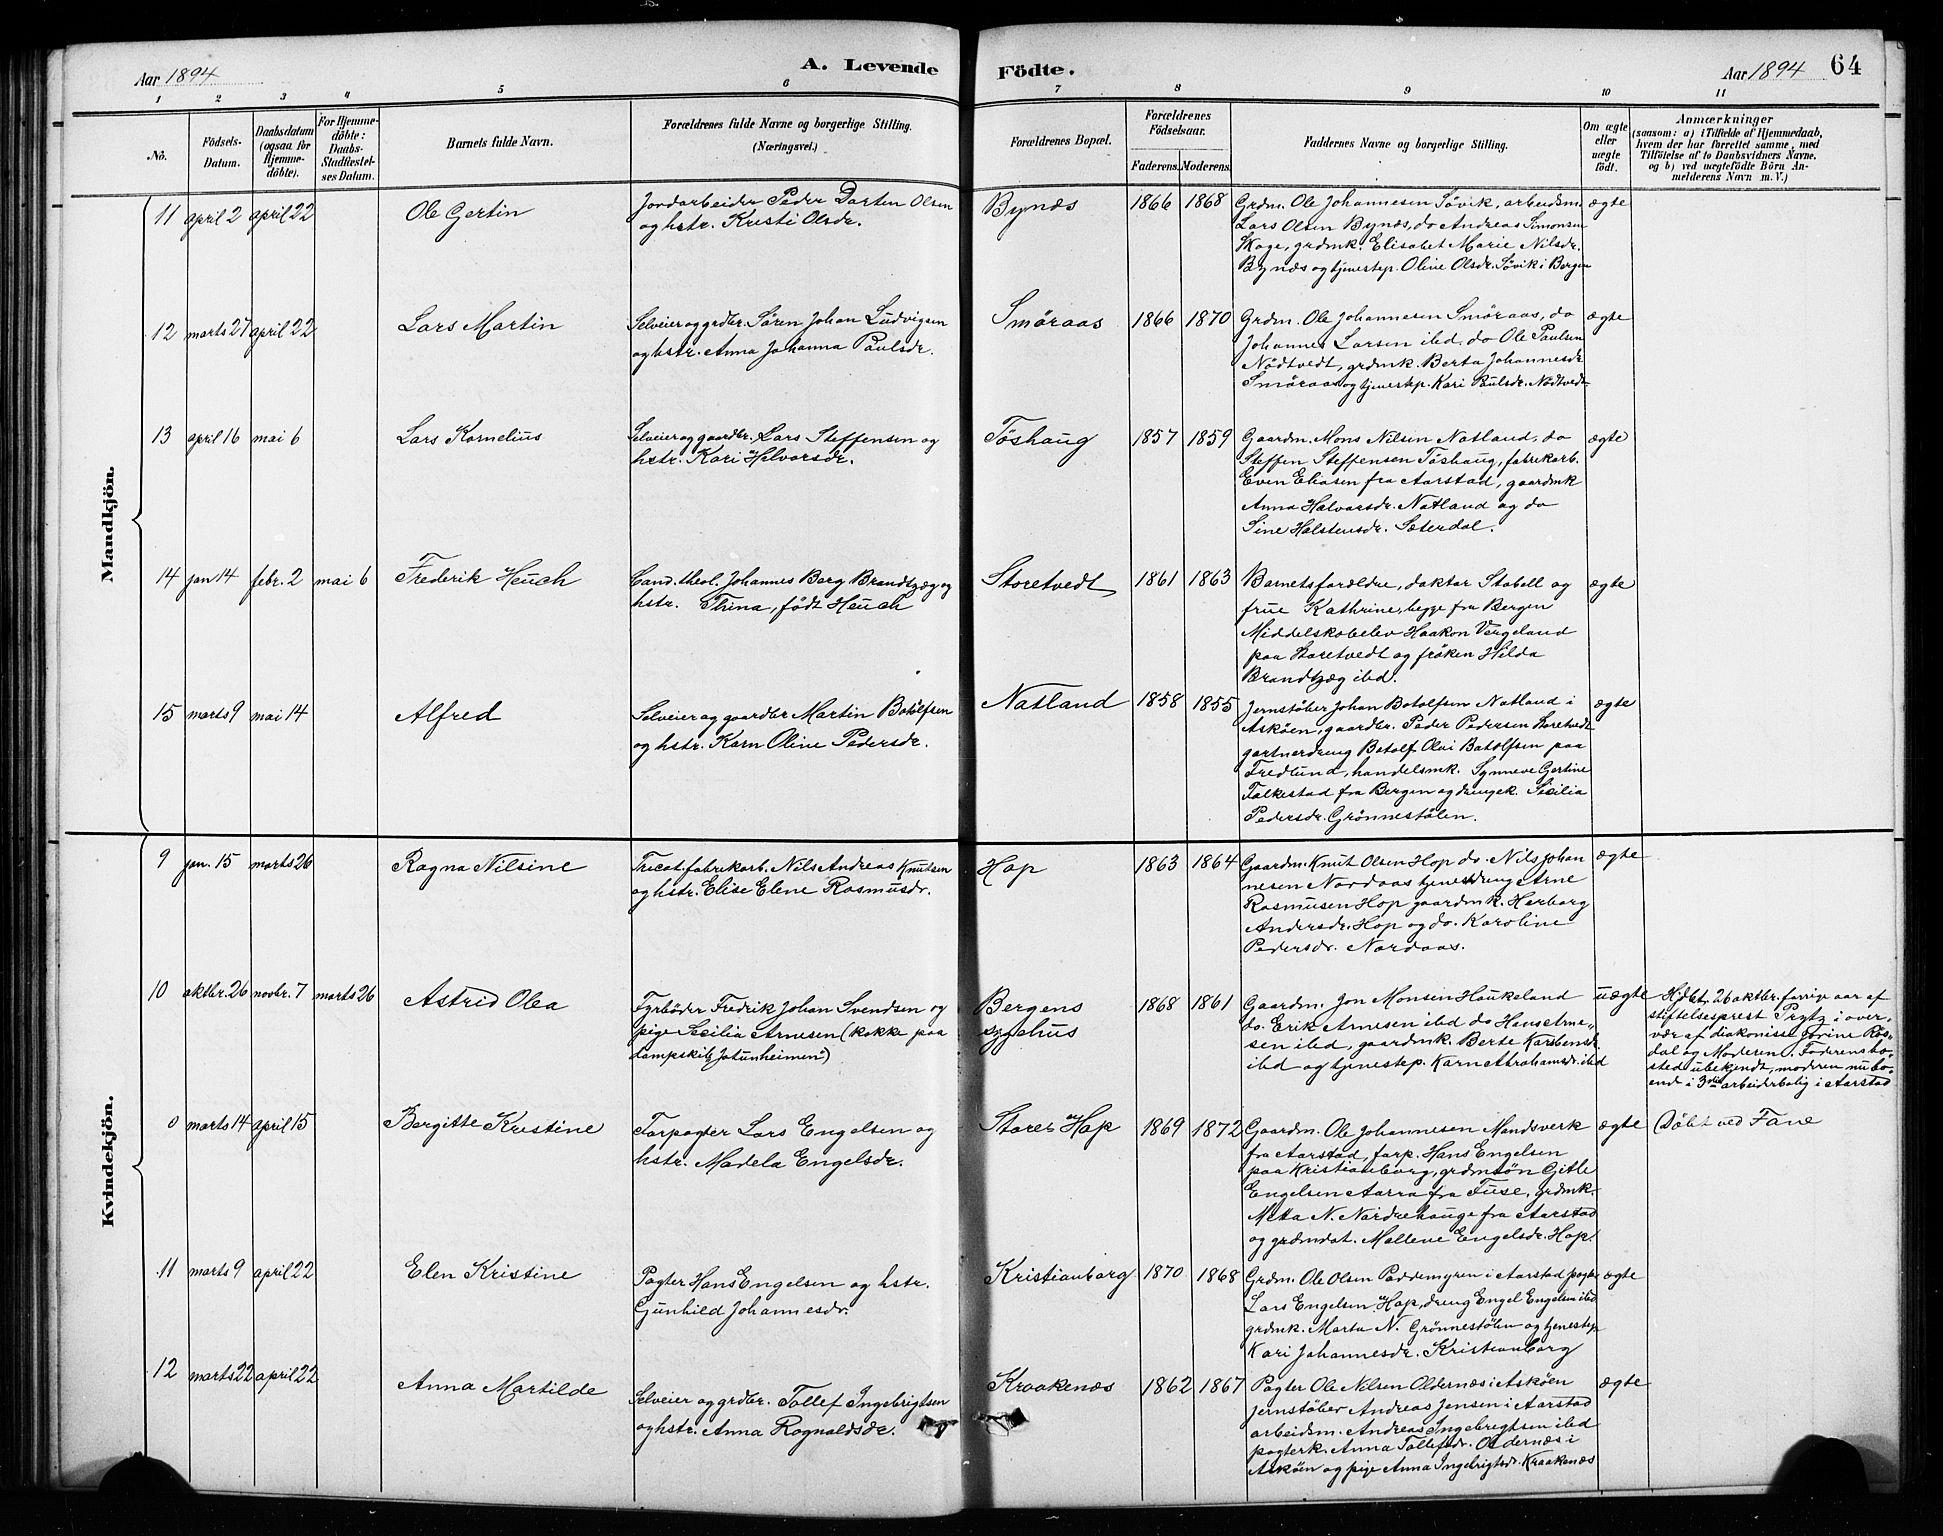 Aar 1894
A. Levende
Födte.
Aar 1894
64
1 2 3 4 5 6 7 8 9 10 11
No.
Födsels-
Datum.
Daabsdatum
(ogsaa for
Hjemme-
döbte).
For Hjemme-
döbte:
Daabs-
Stadfæstel-
ses Datum.
Barnets fulde Navn.
Forældrenes fulde Navne og borgerlige Stilling.
(Næringsvei.)
Forældrenes Bopæl.
Forældrenes
Födselsaar.
Faderens. Moderens.
Faddernes Navne og borgerlige Stilling.
Om ægte
eller
uægte
födt.
Anmærkninger
(saasom: a) i Tilfælde af Hjemmedaab,
hvem der har forrettet samme, med
Tilföielse af to Daabsvidners Navne,
og b) ved uægtefödte Börn An-
melderens Navn m. V.)
Mandkjön.
11 april 2 april 22
Ole Gertin
Jordarbeider Peder Dorten Olsen
og hstr. Kristi Olsdr.
Bynæs
1866 1868
Grdm. Ole Johannesen Søvik, arbeidsm.
Lars Olsen Bynæs, do Andreas Simonsen
Skage, grdmk. Elisabet Marie Nilsdr.
Bynæs og tjenestep. Oline Olsdr. Søvik i Bergen
ægte
12 marts 27 april 22
Lars Martin
Selveier og grdbr. Sören Johan Ludvigsen
og hstr. Anna Johanna Paulsdr.
Smöraas
1866 1870
Grdm. Ole Johannesen Smöraas, do
Johannes Larsen ibd, do Ole Paulsen
Nödtvedt, grdmk. Berta Johannesdr
Smöraas og tjenestep. Kari Paulsdr. Nödtvedt
ægte
13 april 16 mai 6
Lars Kornelius
Selveier og gaardbr. Lars Steffensen og
hstr. Kari Helvorsdr.
Töshaug
1857 1859
Gaardm. Mons Nilsen Natland, do
Steffen Steffensen Töshaug, fabrikarb.
Even Eliasen fra Aarstad, gaardmk
Anna Halvorsdr. Natland og do
Sine Halstensdr. Sæterdal.
ægte
14 jan 14 febr. 2 mai 6
Frederik Heuch
Cand. theol. Johannes Berg Brandtzæg og
hstr. Thina, født Heuch
Storetvedt
1861 1863
Barnets forældre, doktor Stabell og
frue Kathrine, begge fra Bergen
Middelskolelev Haakon Vergeland
paa Storetvedt og fröken Hilda
Brandtzæg ibd.
ægte
15 marts 9 mai 14
Alfred
Selveier og gaardbr Martin Botolfsen
og hstr. Karn Oline Pedersdr.
Natland
1858 1855
Jernstöber Johan Botolfsen Natland i
Askøen, gaardbr. Peder Pedersen Storetvedt
gartnerdreng Botolf Olai Botolfsen paa
Fredlund, handelsmk. Synneve Gertine
Falkestad fra Bergen og drengek. Sicilia
Pedersdr. Grönnestölen.
ægte
Kvindekjön.
9 jan. 15 marts 26
Ragna Nilsine
Tricot.fabrikarb. Nils Andreas Knutsen
og hstr. Elise Elene Rasmusdr.
Hop
1863 1864
Gaardm. Knut Olsen Hop do. Nils Johan
nesen Nordaas tjenestdreng Arne
Rasmusen Hop gaardmk. Herborg
Andersdr. Hop og do. Karoline
Pedersdr. Nordaas.
ægte
10 oktbr. 26 novbr. 7 marts 26
Astrid Olea
Fyrböder Fredrik Johan Svendsen og
pige Secilia Arnesen (kokke paa
dampskib Jotunheimen")
Bergens
sygehus
1868 1861
Gaardm. Jon Monsen Haukeland
do. Erik Arnesen ibd do Hans Arne„
sen ibd, gaardmk. Berte Karstensdr.
ibd og tjenestep. Karn Abrahamsdr. ibd
uægte
Hjdbt. 26 oktbr. forrige aar af
stiftelsesprest Prytz i over-
vær af diakonisse Jorine Ros-
dal og Moderen. Faderens bo-
sted ubekendt, moderen nu bo-
ende i 3die arbeiderbolig i Aarstad
0 marts 14 april 15
Bergitte Kristine
Forpagter Lars Engelsen og
hstr. Madela Engelsdr.
Store Hop
1869 1872
Gaardm. Ole Johannesen Mandsverk
fra Aarstad, forp. Hans Engelsen
paa Kristianborg, grdmsön Gitle
Engelsen Aarra fra Fuse, grdmk.
Metta N. Nordrehauge fra Aarstad
og grdmdat. Mallene Engelsdr. Hop.
ægte
Döbt ved Fane
11 marts 9 april 22
Elen Kristine
Pagter Hans Engelsen og hstr.
Gunhild Johannesdr.
Kristianborg
1870 1868
Grdm. Ole Olsen Paddemyren i Aarstad pagter
Lars Engelsen Hop, dreng Engel Engelsen ibd
grdmk. Marta N. Grönnestölen og tjenestep
Kari Johannesdr. Kristianborg
ægte
12 marts 22 april 22
Anna Martilde
Selveier og grdbr. Tollef Ingebrigtsen
og hstr. Anna Rognaldsdr.
Kraakenæs
1862 1867
Pagter Ole Nilsen Oldernæs i Askøen
jernstöber Andreas Jensen i Aarstad
arbeidsm. Andreas Ingebrigtsen ibd
pagterk. Anna Tollefsdr. Oldernæs i
Askøen og pige Anna Ingebrigtsdr. Kraakenæs
ægte